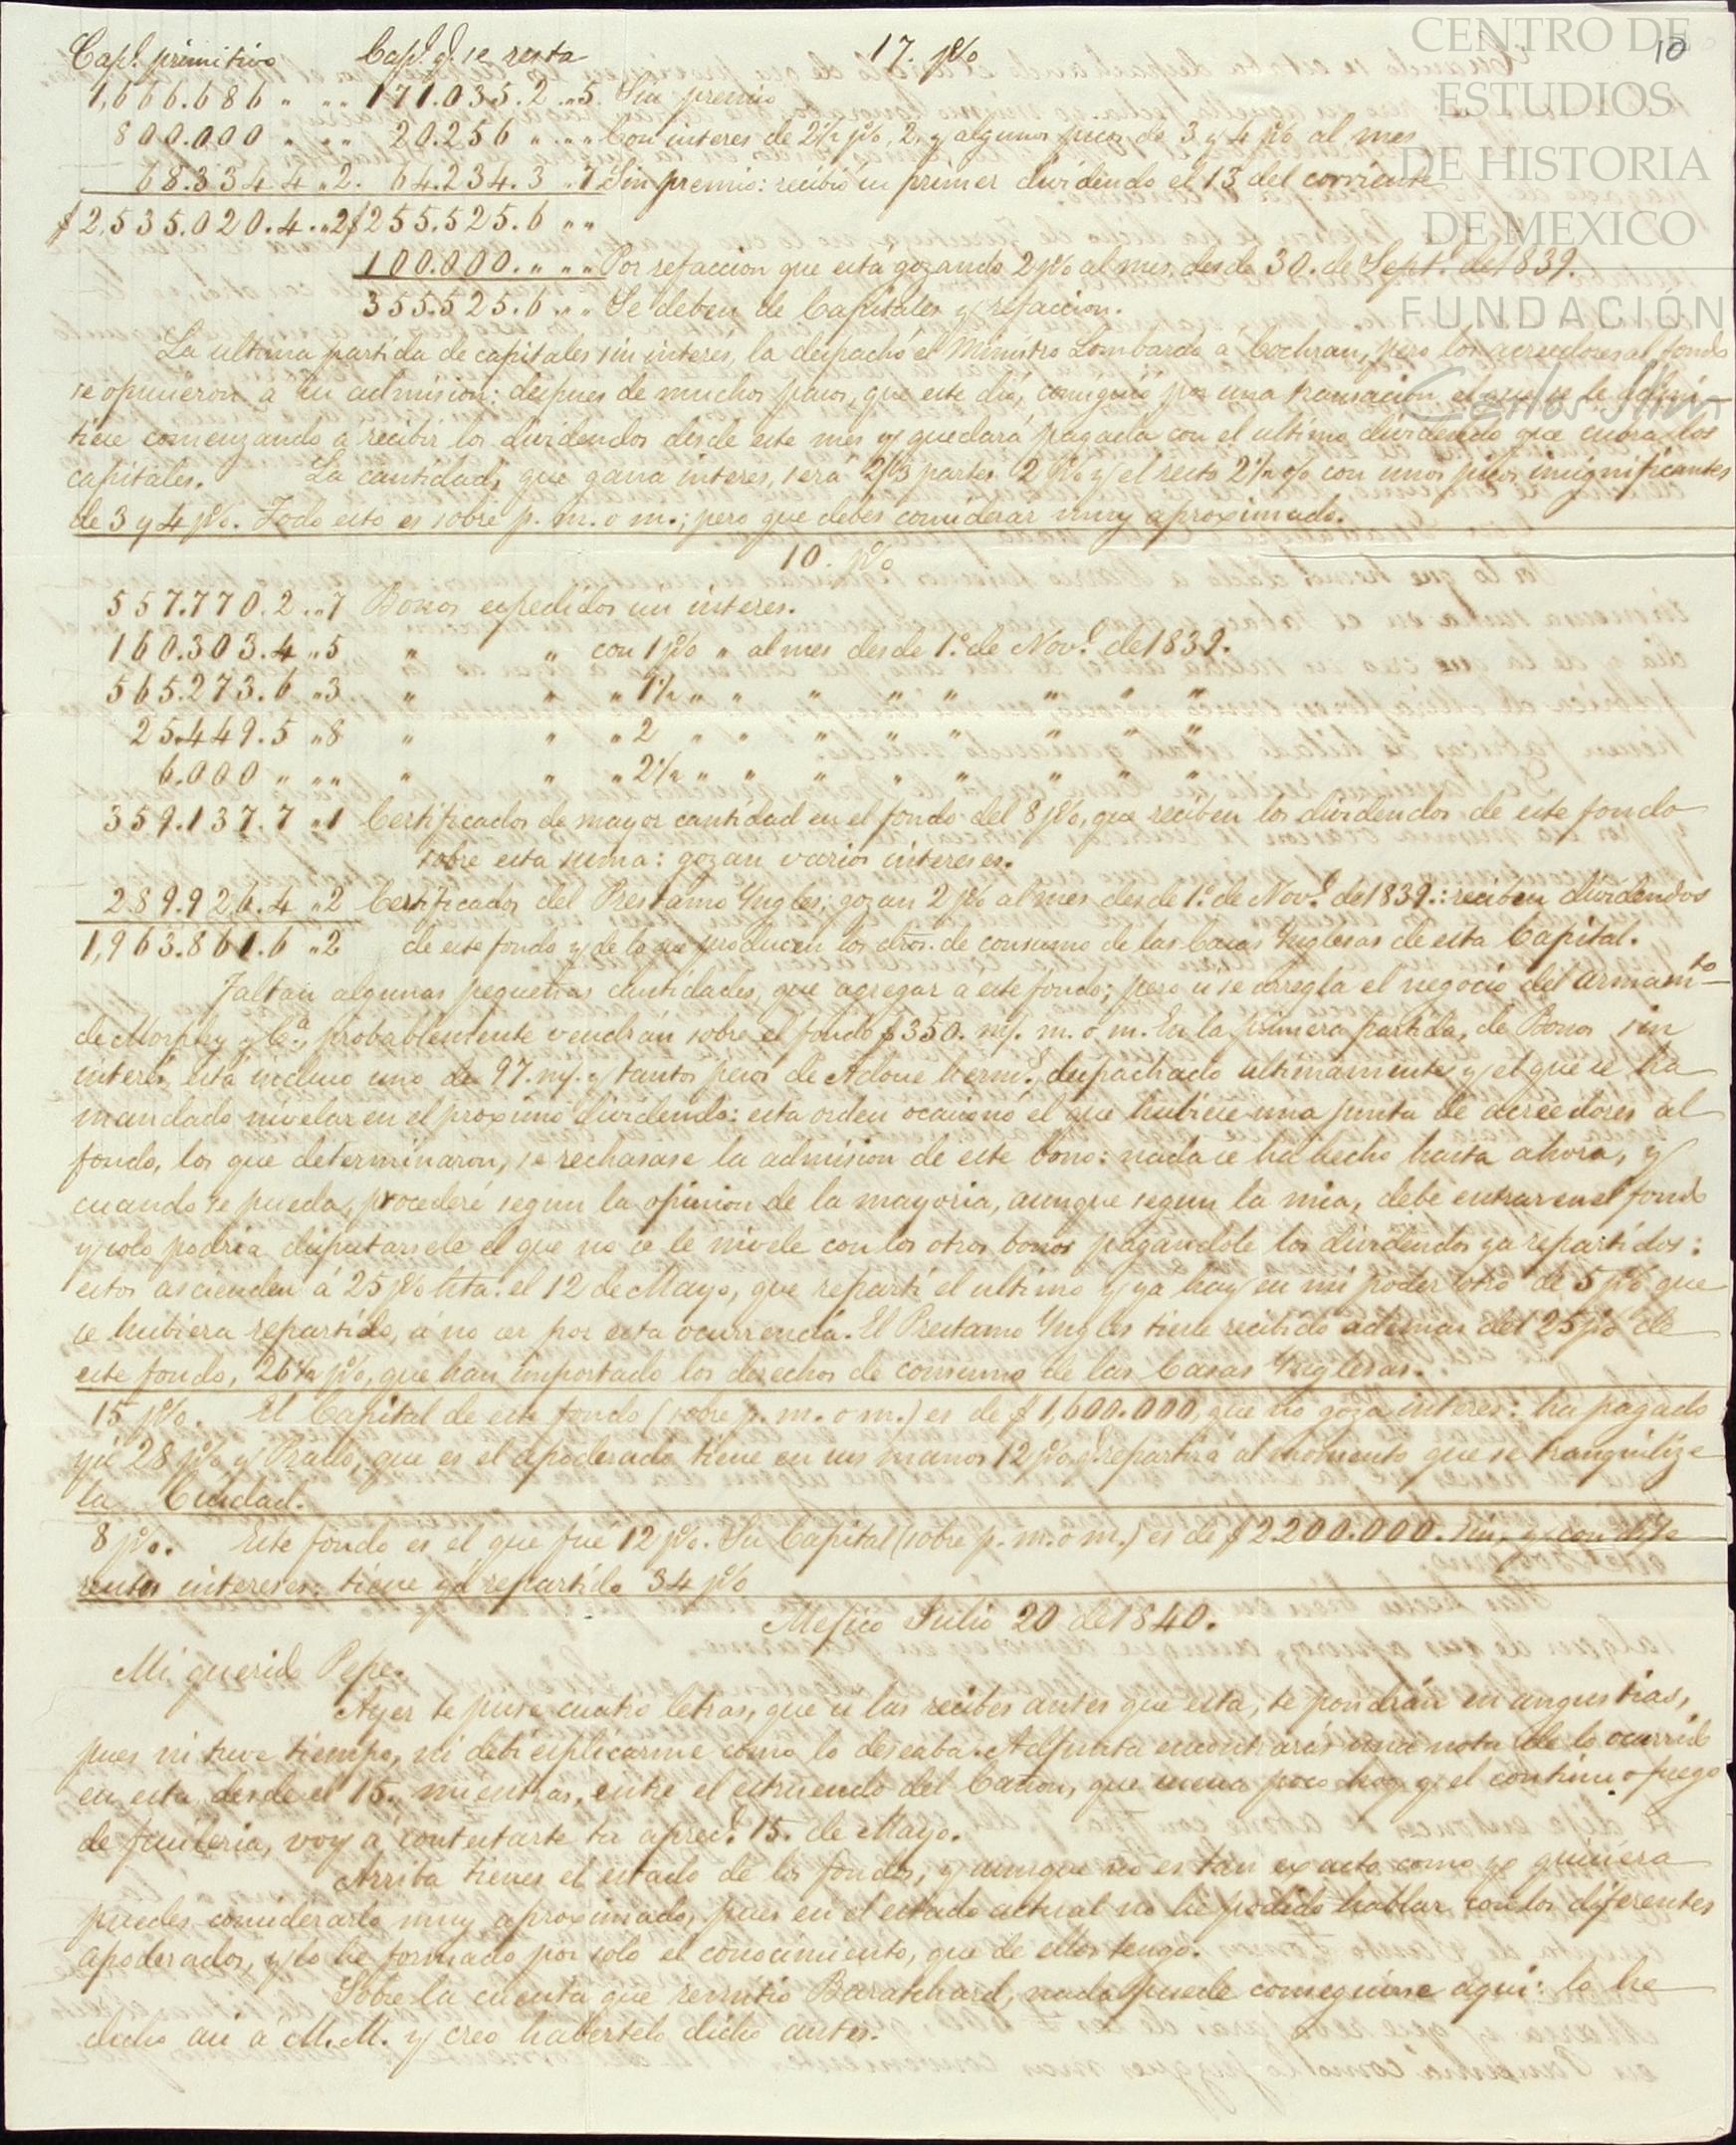 CENTRO DE
ESTUDIOS
DE HISTORIA
DE MEXICO
FUNDACIÓN
Carlos Slim
10
Capl. primitivo Capl. q. se resta 17. p%
1,666.686 " " " 171.035.2 " 5. Sin premio
800.000 " " " 20.256 " " " Con interes de 2½ p%, 2, y algunos picos de 3 y 4 p% al mes
68.334 4 " 2. 64.234.3 " 7 Sin premio: recibió su primer dividendo el 13 del corriente
$ 2,535.020.4 " 2 $ 255.525.6 " "
100.000. " " " Por refaccion que está gozando 2 p% al mes, desde 30. de Sept. de 1839.
355.525.6 " " Se deben de Capitales y refaccion.
La ultima partida de capitales sin interés, la despachó el Ministro Lombardo á Cochran, pero los acreedores al fondo
se opusieron á su admision: despues de muchos pasos, que este dió, consiguió por una transacion el que se le admi-
tiese comenzando á recibir los dividendos desde este mes y quedará pagada con el ultimo dividendo que cubra los
capitales. La cantidad, que gana interes, será 2/3 partes 2 p% y el resto 2½ % con unos picos insignificantes
de 3 y 4 p%. Todo esto es sobre p. m. o m.; pero que debes considerar muy aproximado.
10. p%
557.770.2 " 7 Bonos expedidos sin interes.
160.303.4 " 5 " " con 1 p% " al mes desde 1º. de Nov. de 1839.
565.273.6 " 3 " " " 1½ " " " " " " " "
25.449.5 " 8 " " " 2 " " " " " " " "
6.000 " " " " " " 2½ " " " " " " " "
359.137.7 " 1 Certificados de mayor cantidad en el fondo del 8 p%, que reciben los dividendos de este fondo
sobre esta suma: gozan varios intereses.
289.926.4 " 2 Certificados del Prestamo Ingles; gozan 2 p% al mes desde 1º. de Nov. de 1839.: reciben dividendos
1,963.861.6 " 2 de este fondo y de lo que producen los dros. de consumo de las Casas Inglesas de esta Capital.
Faltan algunas pequeñas cantidades, que agregar á este fondo; pero si se arregla el negocio del armamto
de Morphy y Ca., probablemente vendrán sobre el fondo $ 350. mp. m. o m. En la primera partida, de Bonos sin
interes, está incluso uno de 97. mp. y tantos pesos de Adoue herms., despachado ultimamente y el que se ha
mandado nivelar en el proximo dividendo: esta orden ocasionó el que hubiese una junta de acreedores al
fondo, los que determinaron, se rechasase la admision de este bono: nada se ha hecho hasta ahora, y
cuando se pueda, procederé segun la opinion de la mayoria, aunque segun la mia, debe entrar en el fondo
y solo podria disputarsele el que no se le nivele con los otros bonos pagandole los dividendos ya repartidos:
estos ascienden á 25 p% hta. el 12 de Mayo, que repartí el ultimo y ya hay en mi poder otro de 5 p% que
se hubiera repartido, á no ser por esta ocurrencia. El Prestamo Ingles tiene recibido además del 25 p% de
este fondo, 26½ p%, que han importado los derechos de consumo de las Casas Inglesas.
15 p%. El Capital de este fondo (sobre p. m. o m.) es de $ 1,600.000, que no goza interes: ha pagado
ya 28 p% y Rallo, que es el apoderado tiene en sus manos 12 p% q. repartirá al momento que se tranquilize
la Ciudad.
8 p%. Este fondo es el que fué 12 p%. Su Capital (sobre p. m. o m.) es de $ 2.200.000. sin, y con dife
rentes intereses: tiene ya repartido 34 p%
Mejico Julio 20 de 1840.
Mi querido Pepe.
Ayer te puse cuatro letras, que si las recibes antes que esta, te pondrán en angustias,
pues ni tuve tiempo, ni debi esplicarme como lo deseaba. Adjunta encontrarás una nota de lo ocurrido
en esta, desde el 15. mientras, entre el estruendo del Cañon, que suena poco hoy y el continuo fuego
de fusileria, voy á contestarte tu apred. 15. de Mayo.
Arriba tienes el estado de los fondos, y aunque no es tan exacto como yo quisiera
puedes considerarlo muy aproximado, pues en el estado actual no he podido hablar con los diferentes
apoderados, y lo he formado por solo el conocimiento, que de ellos tengo.
Sobre la cuenta que remitió Baratchard, nada puede conseguirse aqui: lo he
dicho asi á M.M. y creo habertelo dicho antes.